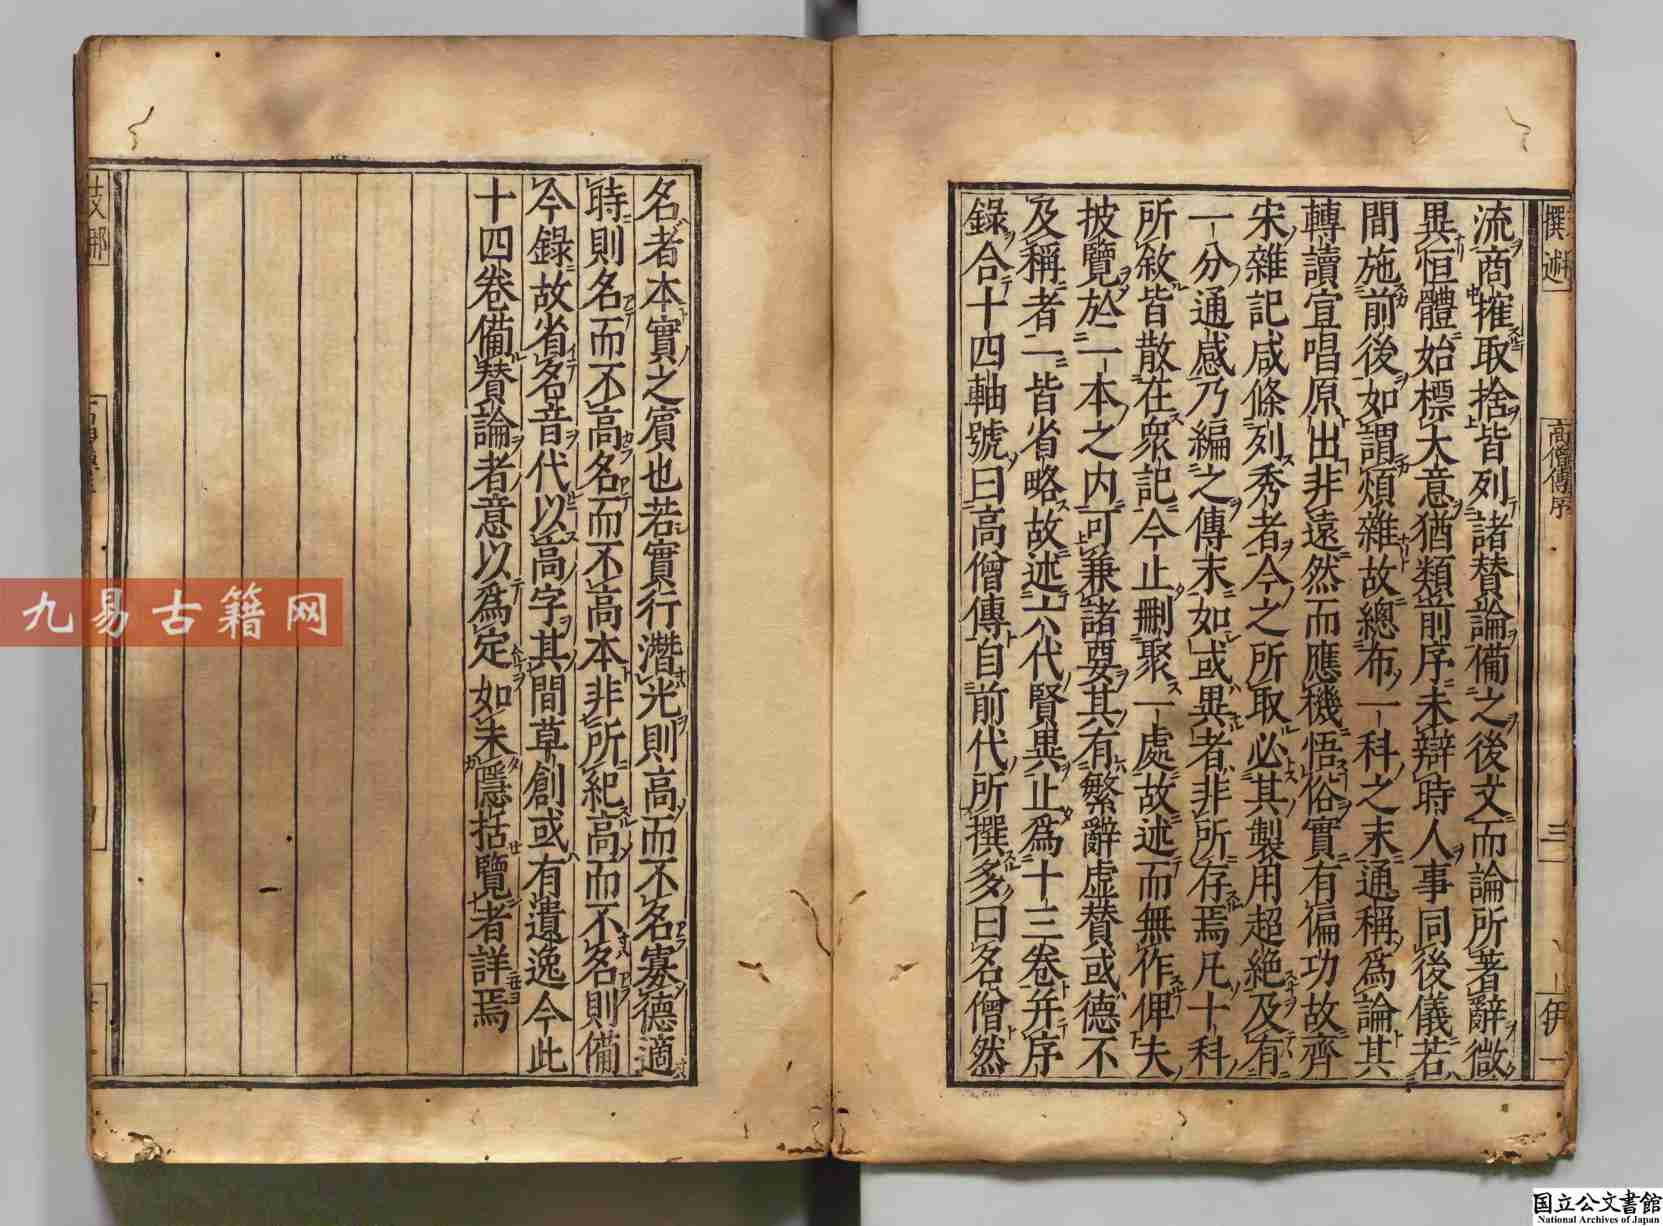 流商搉取捨皆列諸賛論備之後文而論所著辭微
異恒體始標大意猶類前序未辯時人事同後儀若
間施前後如謂煩雜故總布一科之末通稱爲論其
轉讀宣唱原出非遠然而應機悟俗實有偏功故齊
宋雜記咸條列秀者今之所取必其製用超絶及有
一分通感乃編之傳末如或異者非所存焉凡十科
所敘皆散在衆記今止刪聚一處故述而無作俾夫
披覽於一本之内可兼諸要其有繁辭虚賛或德不
及稱者一皆省略故述六代賢異止爲十三卷并序
錄合十四軸號曰高僧傳自前代所撰多曰名僧然
名者本實之賓也若實行潛光則高而不名寡德適
時則名而不高名而不高本非所紀高而不名則備
今錄故省名音代以高字其間草創或有遺逸今此
十四卷備賛論者意以爲定如未隱括覽者詳焉
撰述
高僧傳序
三
伊一
支那
九易古籍网
国立公文書館
National Archives of Japan